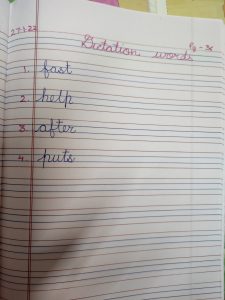 27-1-22
Dictation words
1. fast
2. help
3. after
4. puts